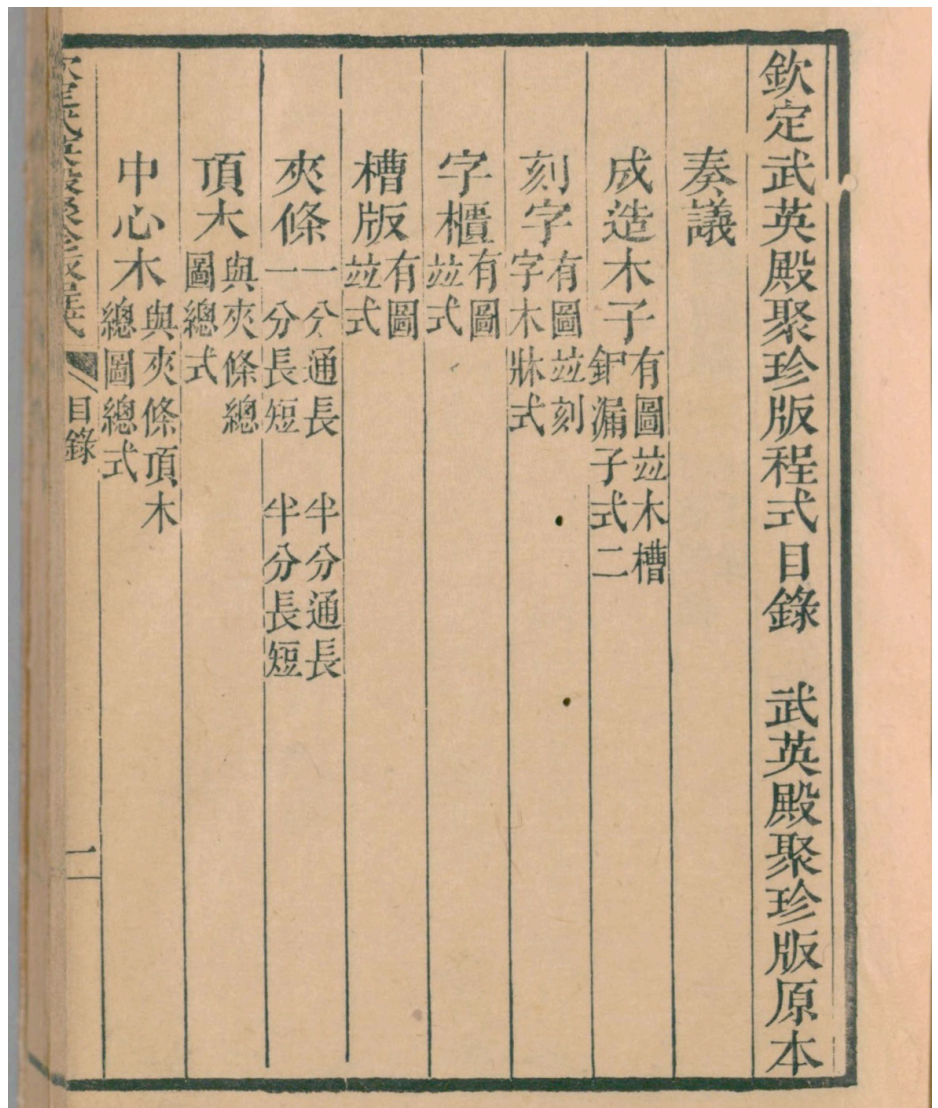 欽定武英殿聚珍版程式目錄　武英殿聚珍版原本
奏議
成造木子有圖竝木槽鉋漏子式二
刻字有圖竝刻字木牀式
字櫃有圖竝式
槽版有圖竝式
夾條一分通長　半分通長一分長短　半分長短
頂木與夾條總圖總式
中心木與夾條頂木總圖總式
欽定武英殿聚珍版程式　目錄　一